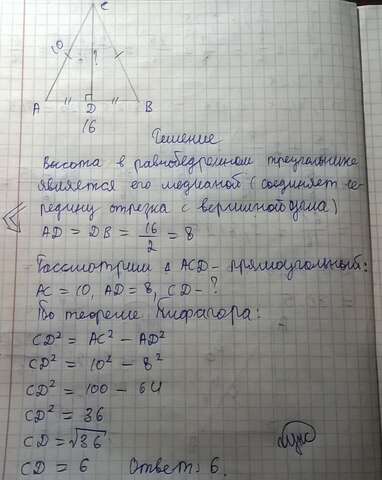 C
10
?
A D B
16
Решение
Высота в равнобедренном треугольнике
является его медианой (соединяет се-
редину отрезка с вершиной угла)
AD = DB = 16/2 = 8
Рассмотрим Δ ACD - прямоугольный:
AC = 10, AD = 8, CD - ?
По теореме Пифагора:
CD² = AC² - AD²
CD² = 10² - 8²
CD² = 100 - 64
CD² = 36
CD = √36
CD = 6 Ответ: 6.